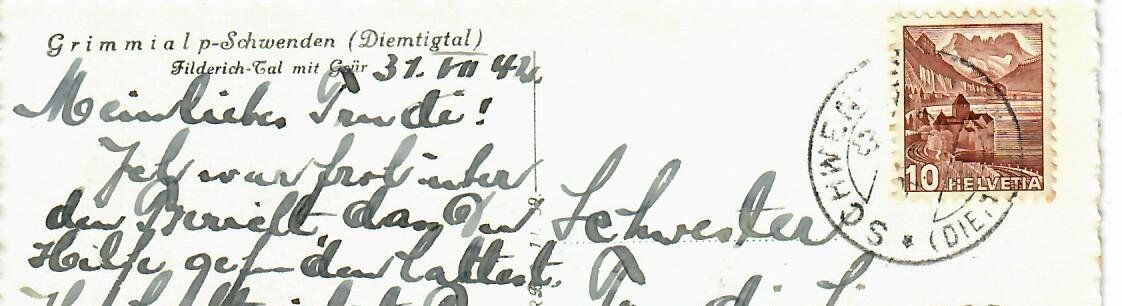 Grimmialp-Schwenden (Diemtigtal)
Filderich-Tal mit Gsür 31. VII 42.
Mein liebes Trudi!
Ich war froh über
den Bericht, dass Du
Hilfe gefunden hattest.
Schwester
10 HELVETIA
SCHWEN
(DIEM